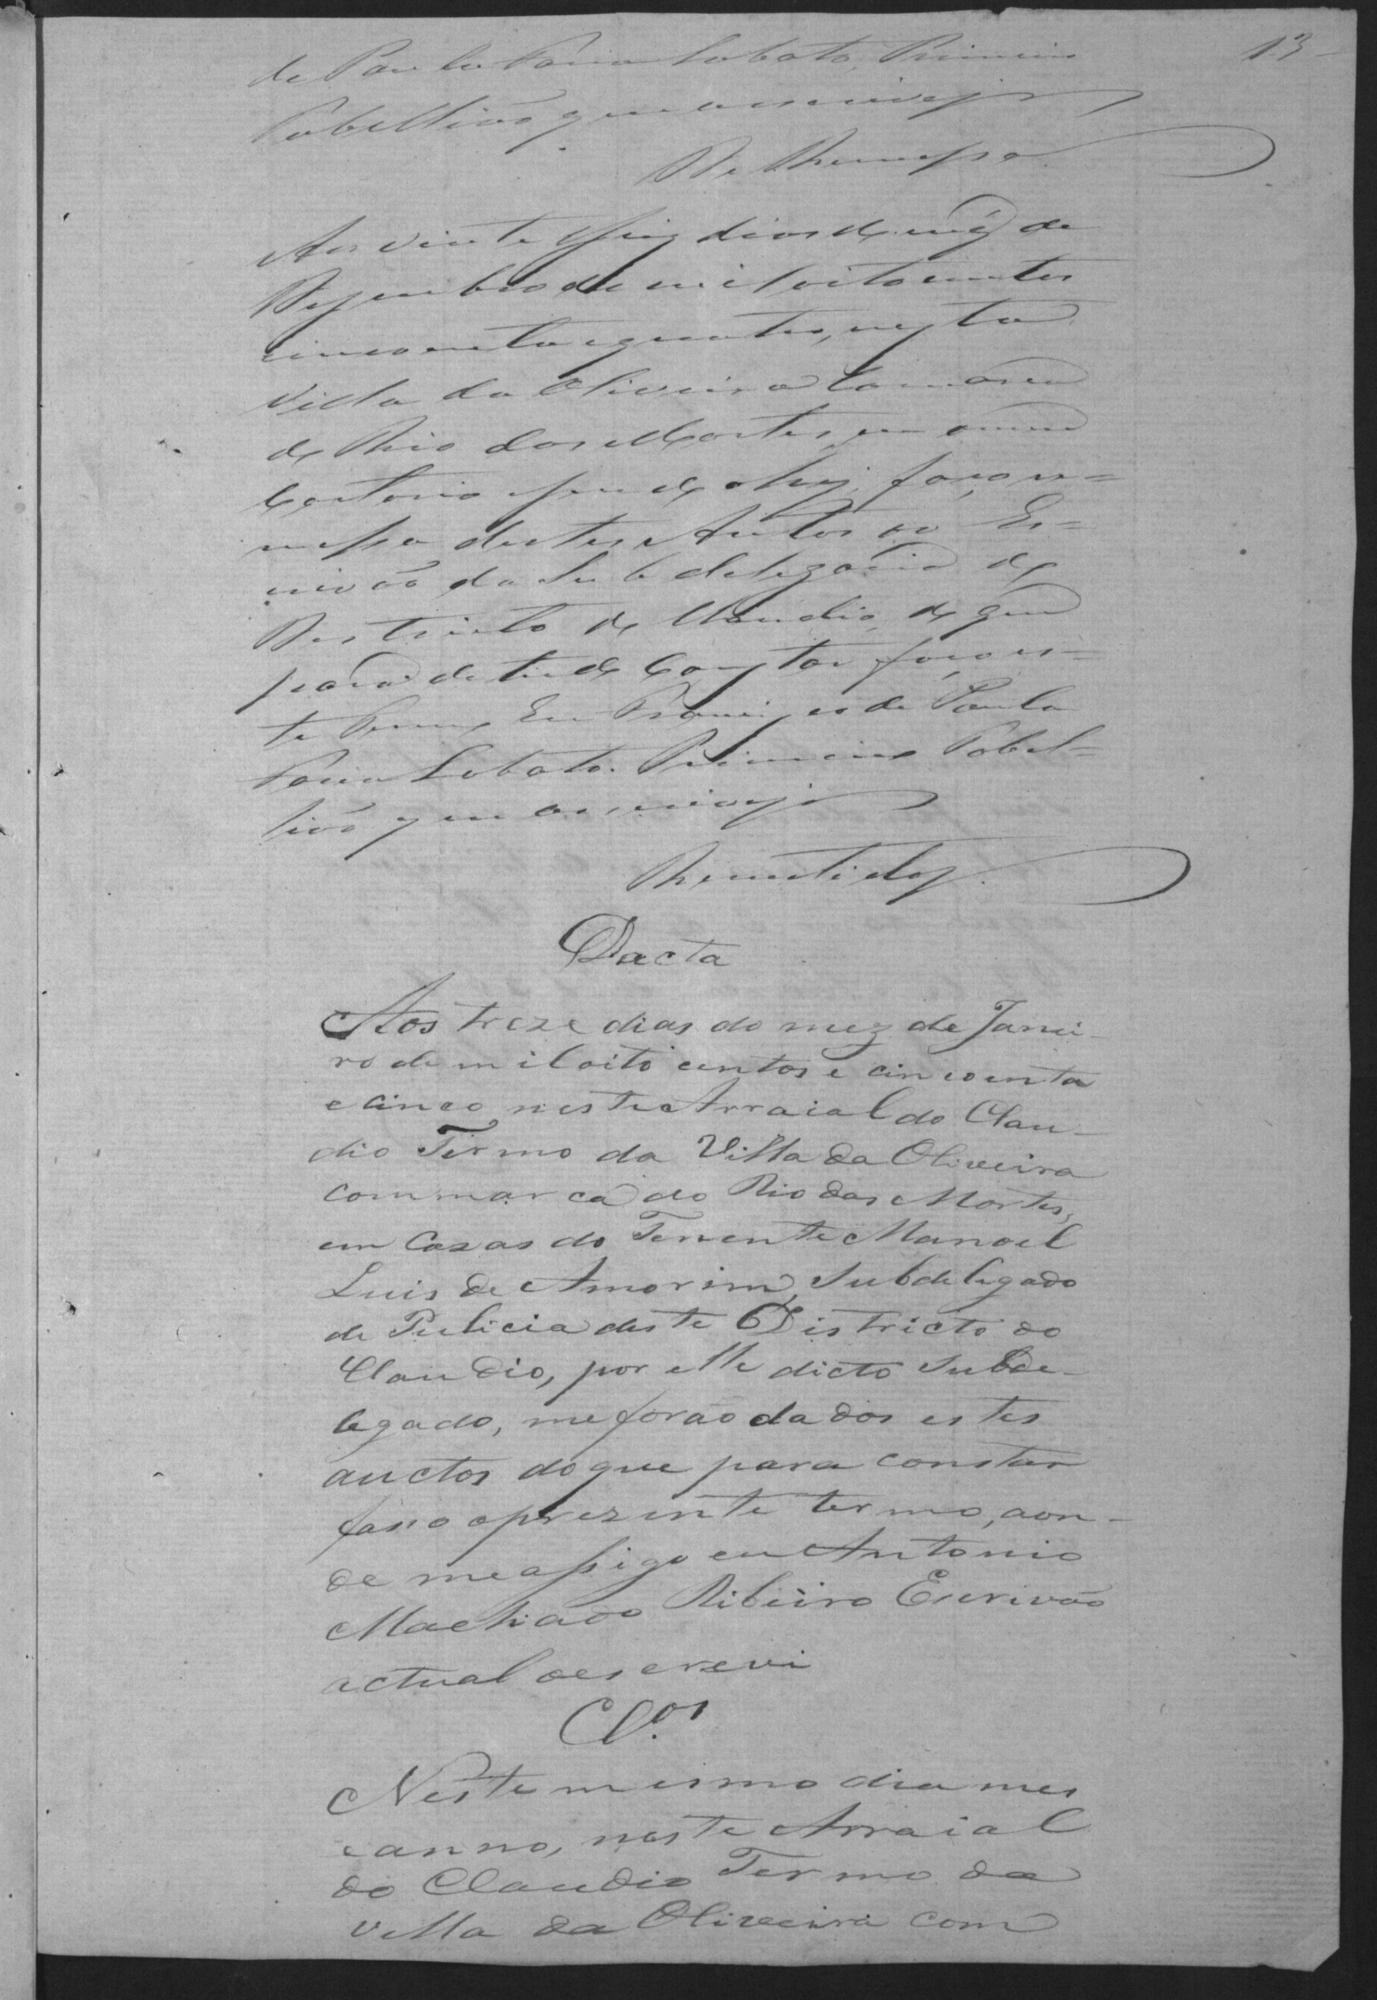 13
de Paula Faria Lobato, Primeiro
Tabellião que o escrevy
De Remessa
Aos vinte seis dias do mêz de
Dezembro de mil oito centos
cincoenta e quatro, nesta
Villa da Oliveira Comarca
do Rio das Mortes, em o meu
Cartorio e sendo ahy, faço re=
messa destes Autos ao Es=
crivão da Subdelegacia do
Destricto do Claudio, do que
para de tudo constar faço es=
te Termo, Eu Francisco de Paula
Faria Lobato. Primeiro Tabel=
lião que o escrevy
Remetidos.
Dacta
Aos treze dias do mez de Janei-
ro de mil oito centos e cincoenta
e cinco neste Arraial do Clau-
dio Termo da Villa da Oliveira
commarca do Rio das Mortes,
em Cazas do Tenente Manoel
Luis de Amorim, Subdelegado
de Pulicia deste Districto do
Claudio, por elle dicto Subde-
legado, me forão dados estes
auctos do que para constar
faso o prezente termo, aon-
de me assigo eu Antonio
Machado Ribeiro Escrivão
actual o escrevi
Cl.os
Neste mesmo dia mes
e anno, neste Arraial
do Claudio Termo da
Villa da Oliveira com